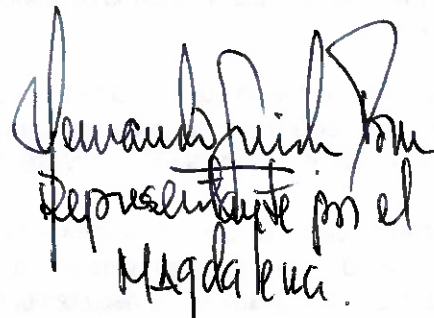 Hernando Guida Ponce
Representante por el
Magdalena.